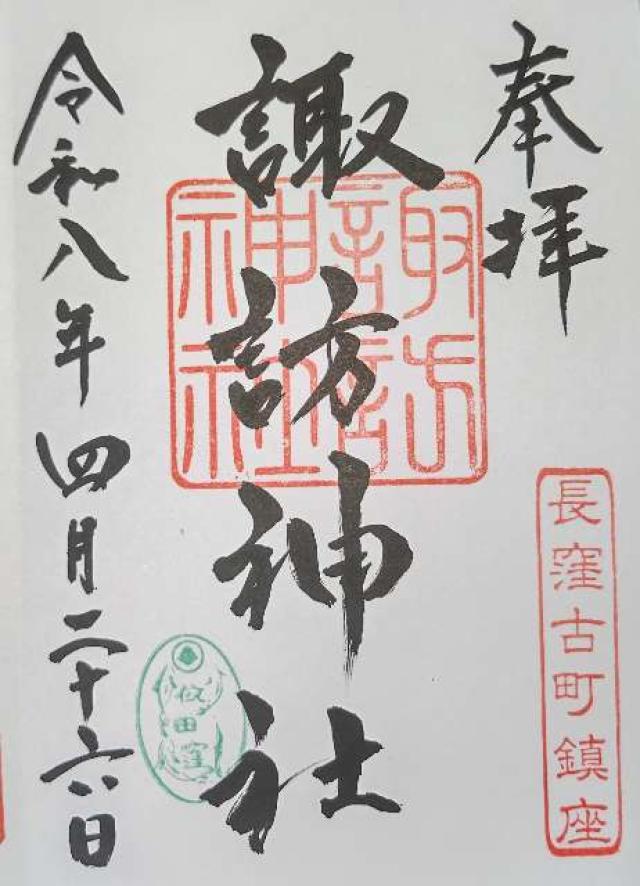 奉拝
長窪古町鎮座
諏訪神社
諏訪
神社
令和八年四月二十六日